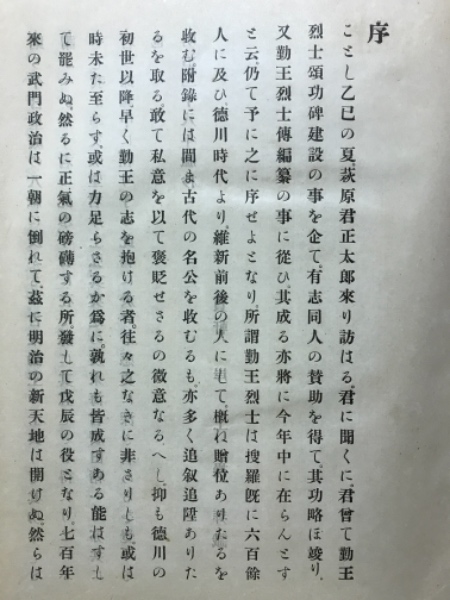 序
ことし乙巳の夏、萩原君正太郎來り訪はる、君に聞くに、君曾て勤王
烈士頌功碑建設の事を企て、有志同人の贊助を得て、其功略ほ竣り、
又勤王烈士傳編纂の事に從ひ、其成る亦將に今年中に在らんとす
と云、仍て予に之に序せよとなり、所謂勤王烈士は搜羅旣に六百餘
人に及ひ、德川時代より、維新前後の人に止て、槪ね贈位ありたるを
收む、附錄には間ま古代の名公を收むるも、亦多く追叙追陞ありた
るを取る、敢て私意を以て褒貶せさるの微意なるへし、抑も德川の
初世以降、早く勤王の志を抱ける者、往々之なきに非さりしも、或は
時未た至らす、或は力足らさるか爲に、孰れも皆成すある能はすし
て罷みぬ、然るに正氣の磅礴する所、發して戊辰の役となり、七百年
來の武門政治は一朝に倒れて、玆に明治の新天地は開けぬ、然らは